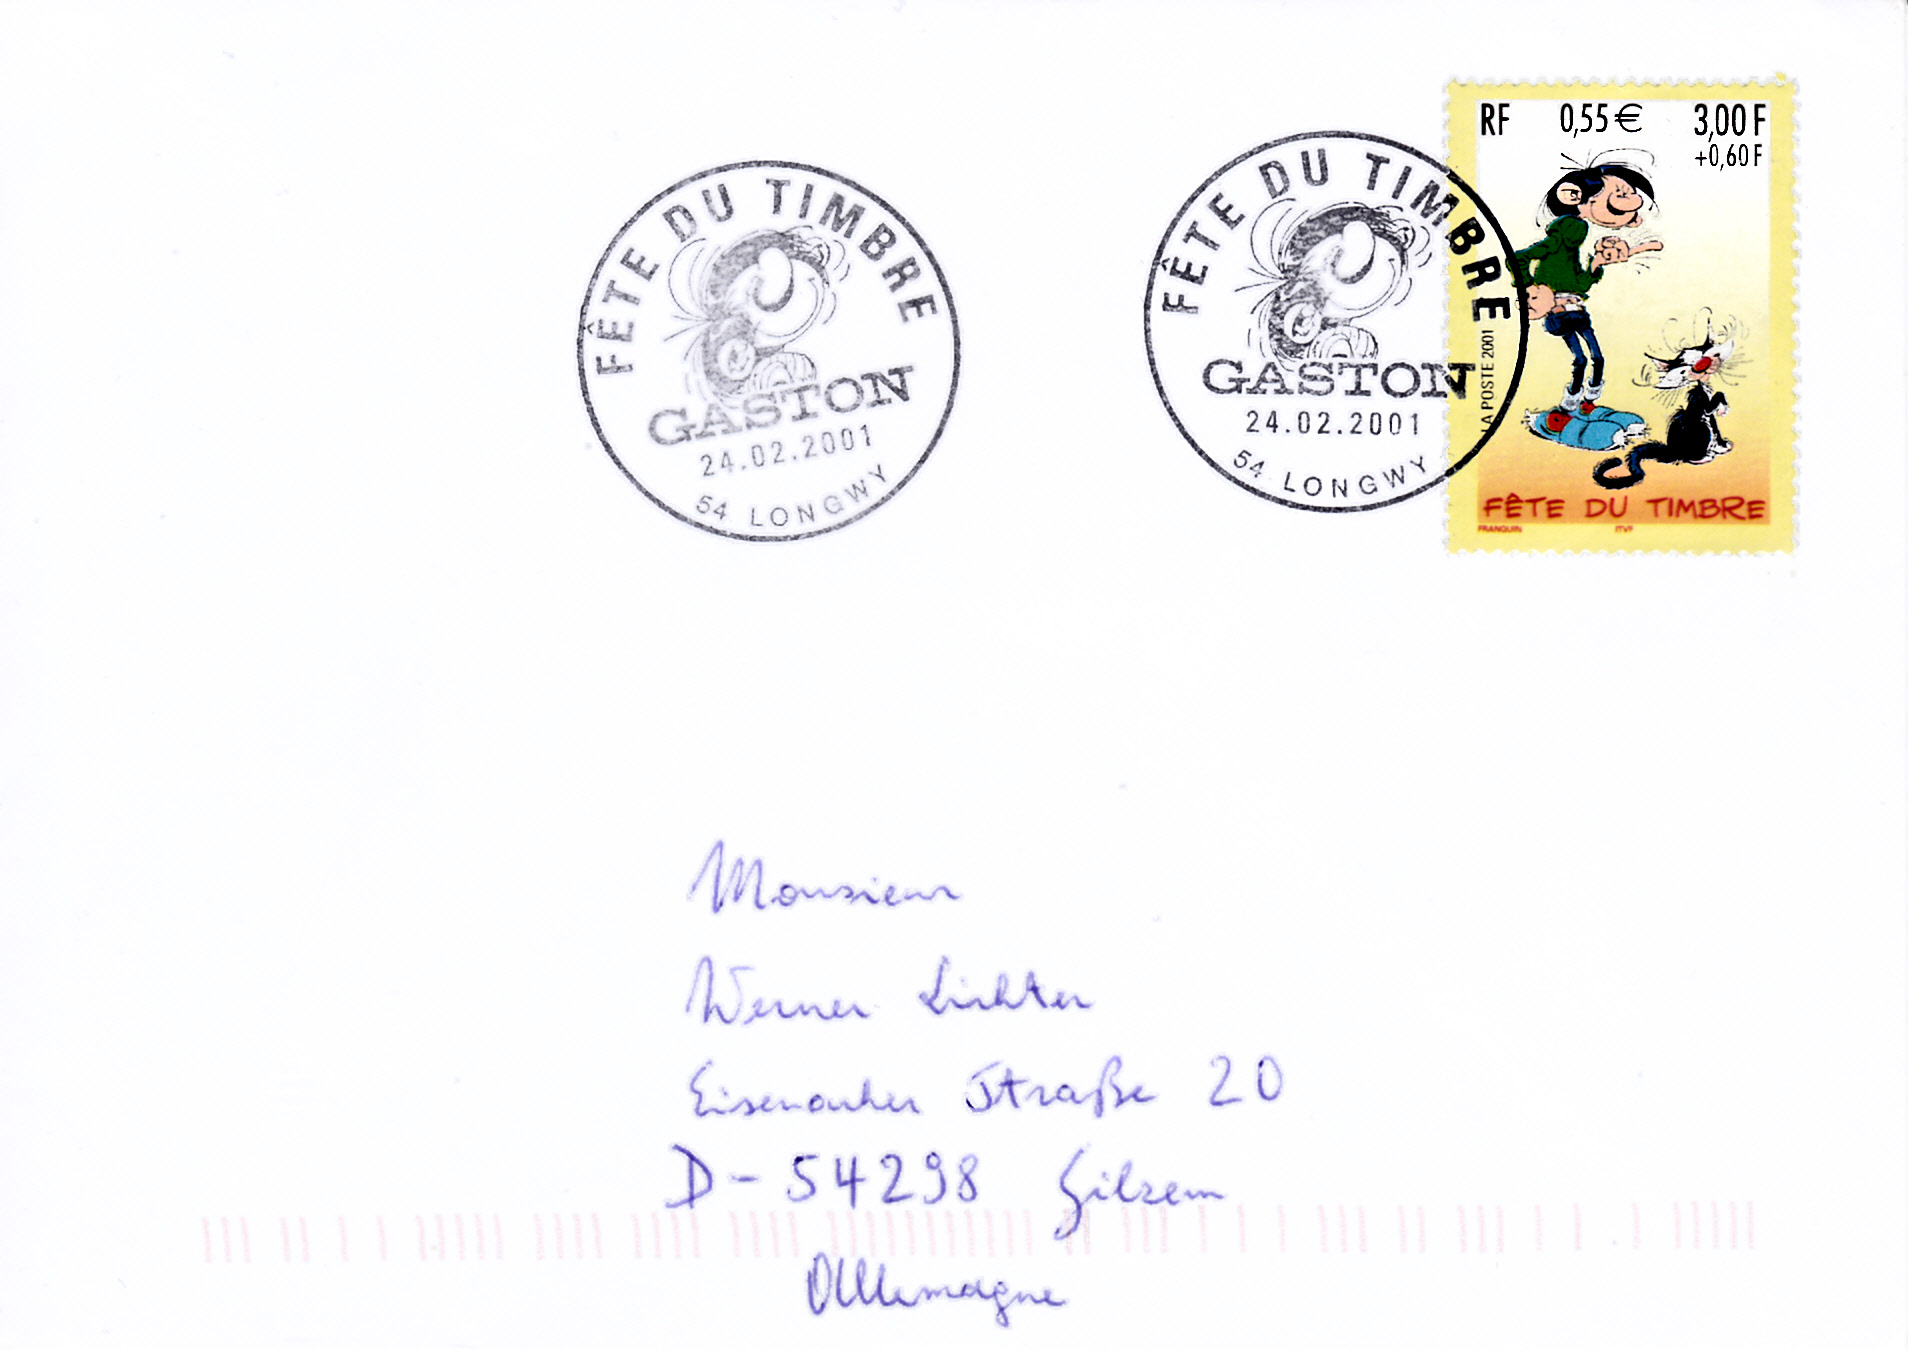 FÊTE DU TIMBRE
GASTON
24.02.2001
54 LONGWY
FÊTE DU TIMBRE
GASTON
24.02.2001
54 LONGWY
RF 0,55 € 3,00 F
+0,60 F
LA POSTE 2001
FÊTE DU TIMBRE
FRANQUIN ITVF
Monsieur
Werner Lichter
Eisenacher Straße 20
D-54298 Gilzem
Allemagne